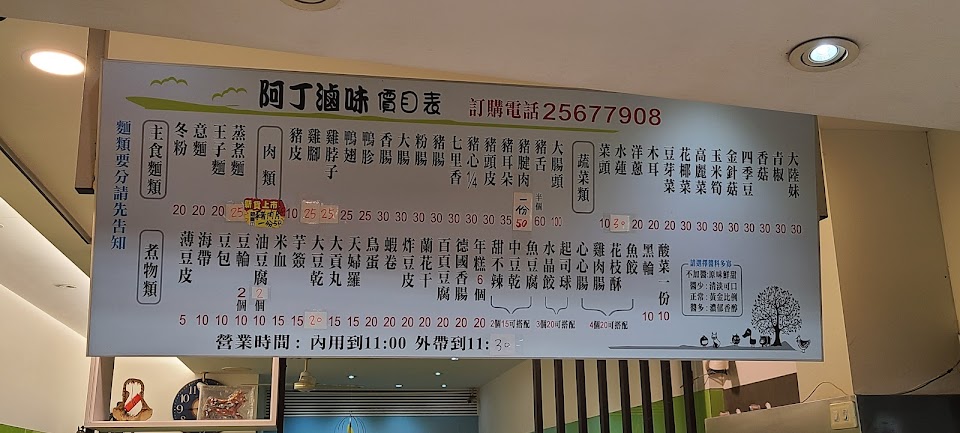 阿丁滷味 價目表 訂購電話 25677908
麵類要分請先告知
主食麵類
冬粉 20
意麵 20
王子麵 20
蒸煮麵 25
新貨上市
肉類
豬皮 10
雞腳 25
雞脖子 25
鴨翅 25
鴨胗 25
香腸 30
大腸 30
粉腸 30
豬腸 30
七里香 30
豬心¼ 30
豬頭皮 30
豬耳朵 35
豬腱肉 一份 50
豬舌 半個 60
大腸頭 100
蔬菜類
菜頭 10
水蓮 30
洋蔥 20
木耳 20
豆芽菜 20
花椰菜 30
高麗菜 30
玉米筍 30
金針菇 30
四季豆 30
香菇 30
青椒 30
大陸妹 30
煮物類
薄豆皮 5
海帶 10
豆包 10
豆輪 2個 10
油豆腐 2個 10
米血 15
芋簽 15
大豆乾 20
大貢丸 15
天婦羅 15
鳥蛋 20
蝦卷 20
炸豆皮 20
蘭花干 20
百頁豆腐 20
德國香腸 20
年糕6個 20
甜不辣
中豆乾
魚豆腐
2個15可搭配
水晶餃
起司球
3個20可搭配
心心腸
雞肉腸
花枝酥
魚餃
4個20可搭配
黑輪 10
酸菜一份 10
請選擇醬料多寡
不加醬:原味鮮甜
醬少:清淡可口
正常:黃金比例
醬多:濃郁香醇
營業時間:內用到11:00 外帶到11:30